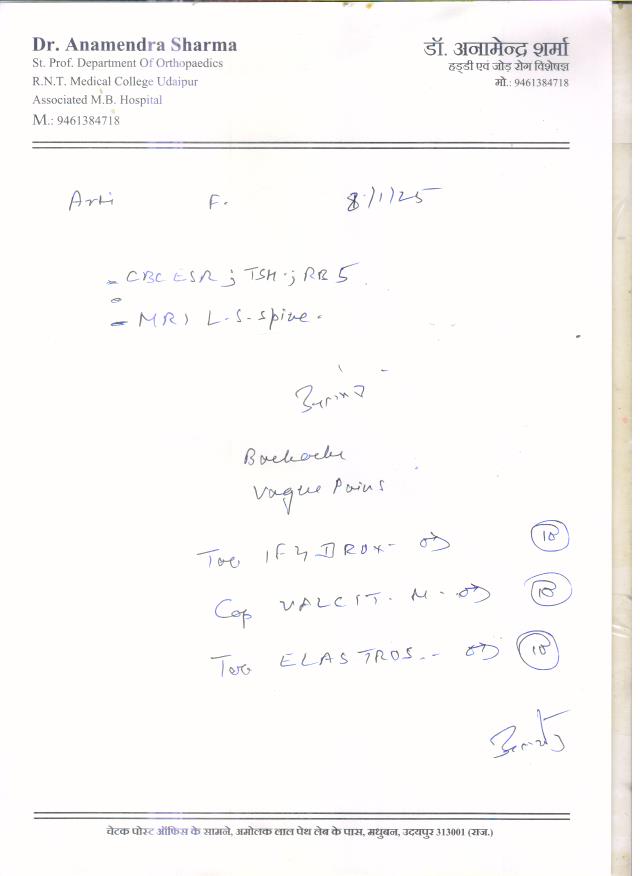 Dr. Anamendra Sharma
St. Prof. Department Of Orthopaedics
R.N.T. Medical College Udaipur
Associated M.B. Hospital
M.: 9461384718
डॉ. अनामेन्द्र शर्मा
हड्डी एवं जोड़ रोग विशेषज्ञ
मो.: 9461384718
Arti F. 8/1/25
- CBC ESR ; TSH ;
- MRI L-S-spine.
Backache
Vague Pains
Tab
Cap VALCIT-M -
Tab ELASTROS -
चेटक पोस्ट ऑफिस के सामने, अमोलक लाल पेथ लेब के पास, मधुबन, उदयपुर 313001 (राज.)